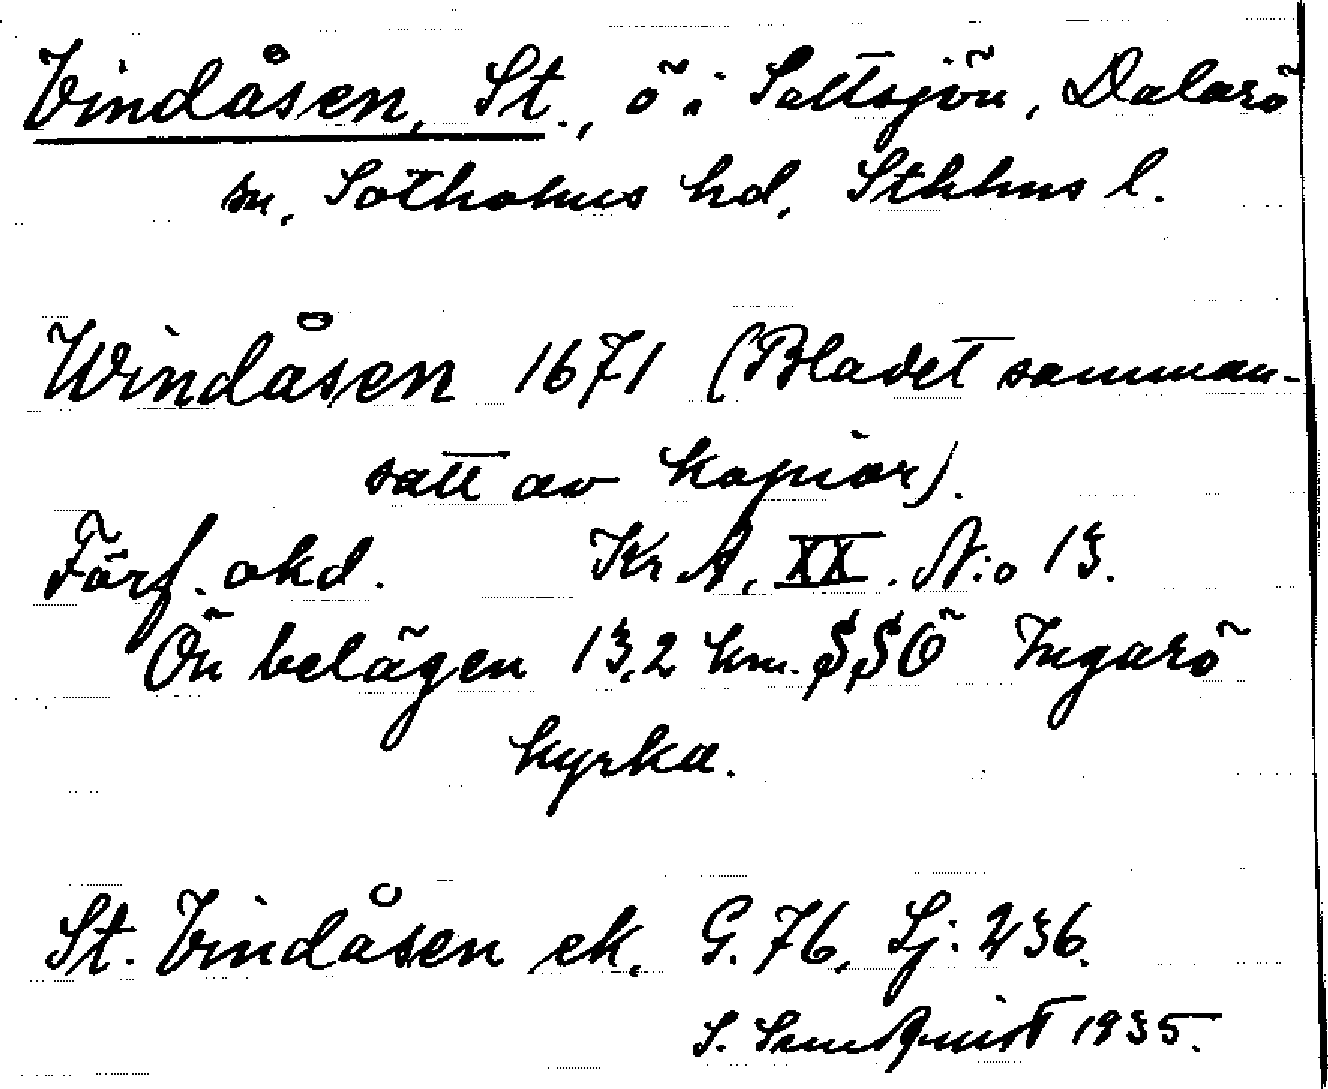 Vindåsen, St., ö i Saltsjön, Dalarö
sn, Sotholms hd, Sthlms l.
Windåsen 1671 (Bladet samman-
satt av kopior).
Förf. okd. Kr A, XX. N:o 13.
Ön belägen 13,2 km. SSÖ Ingarö
kyrka.
St. Vindåsen ek. G. 76, Lj: 236.
S. 1935.